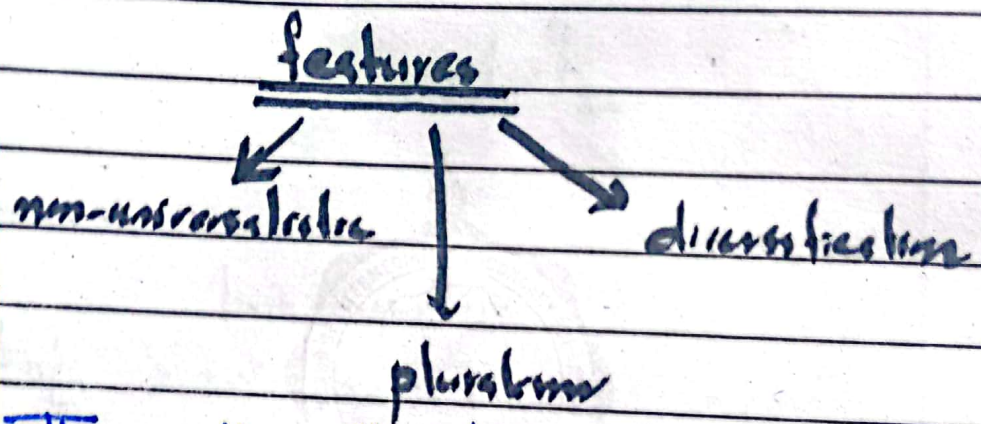 features
non-universalistic
diversification
pluralism